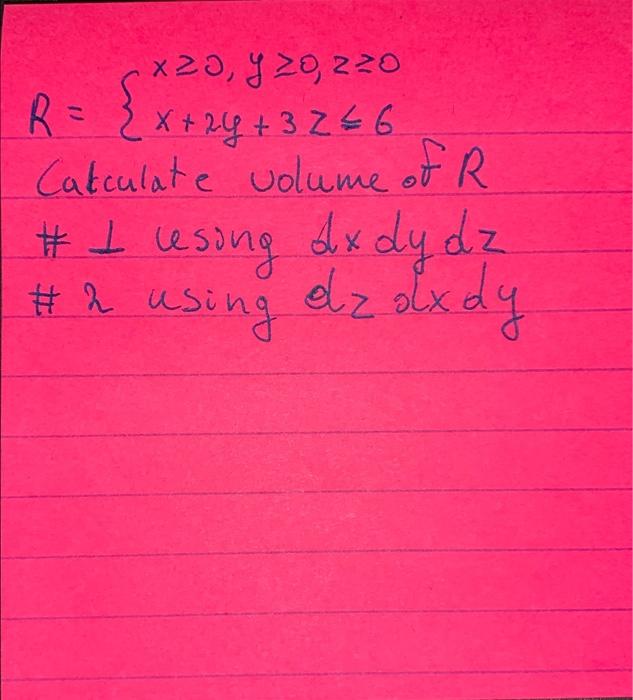 x≥0, y≥0, z≥0
R = { x + 2y + 3z ≤ 6
Calculate volume of R
# 1 using dx dy dz
# 2 using dz dx dy